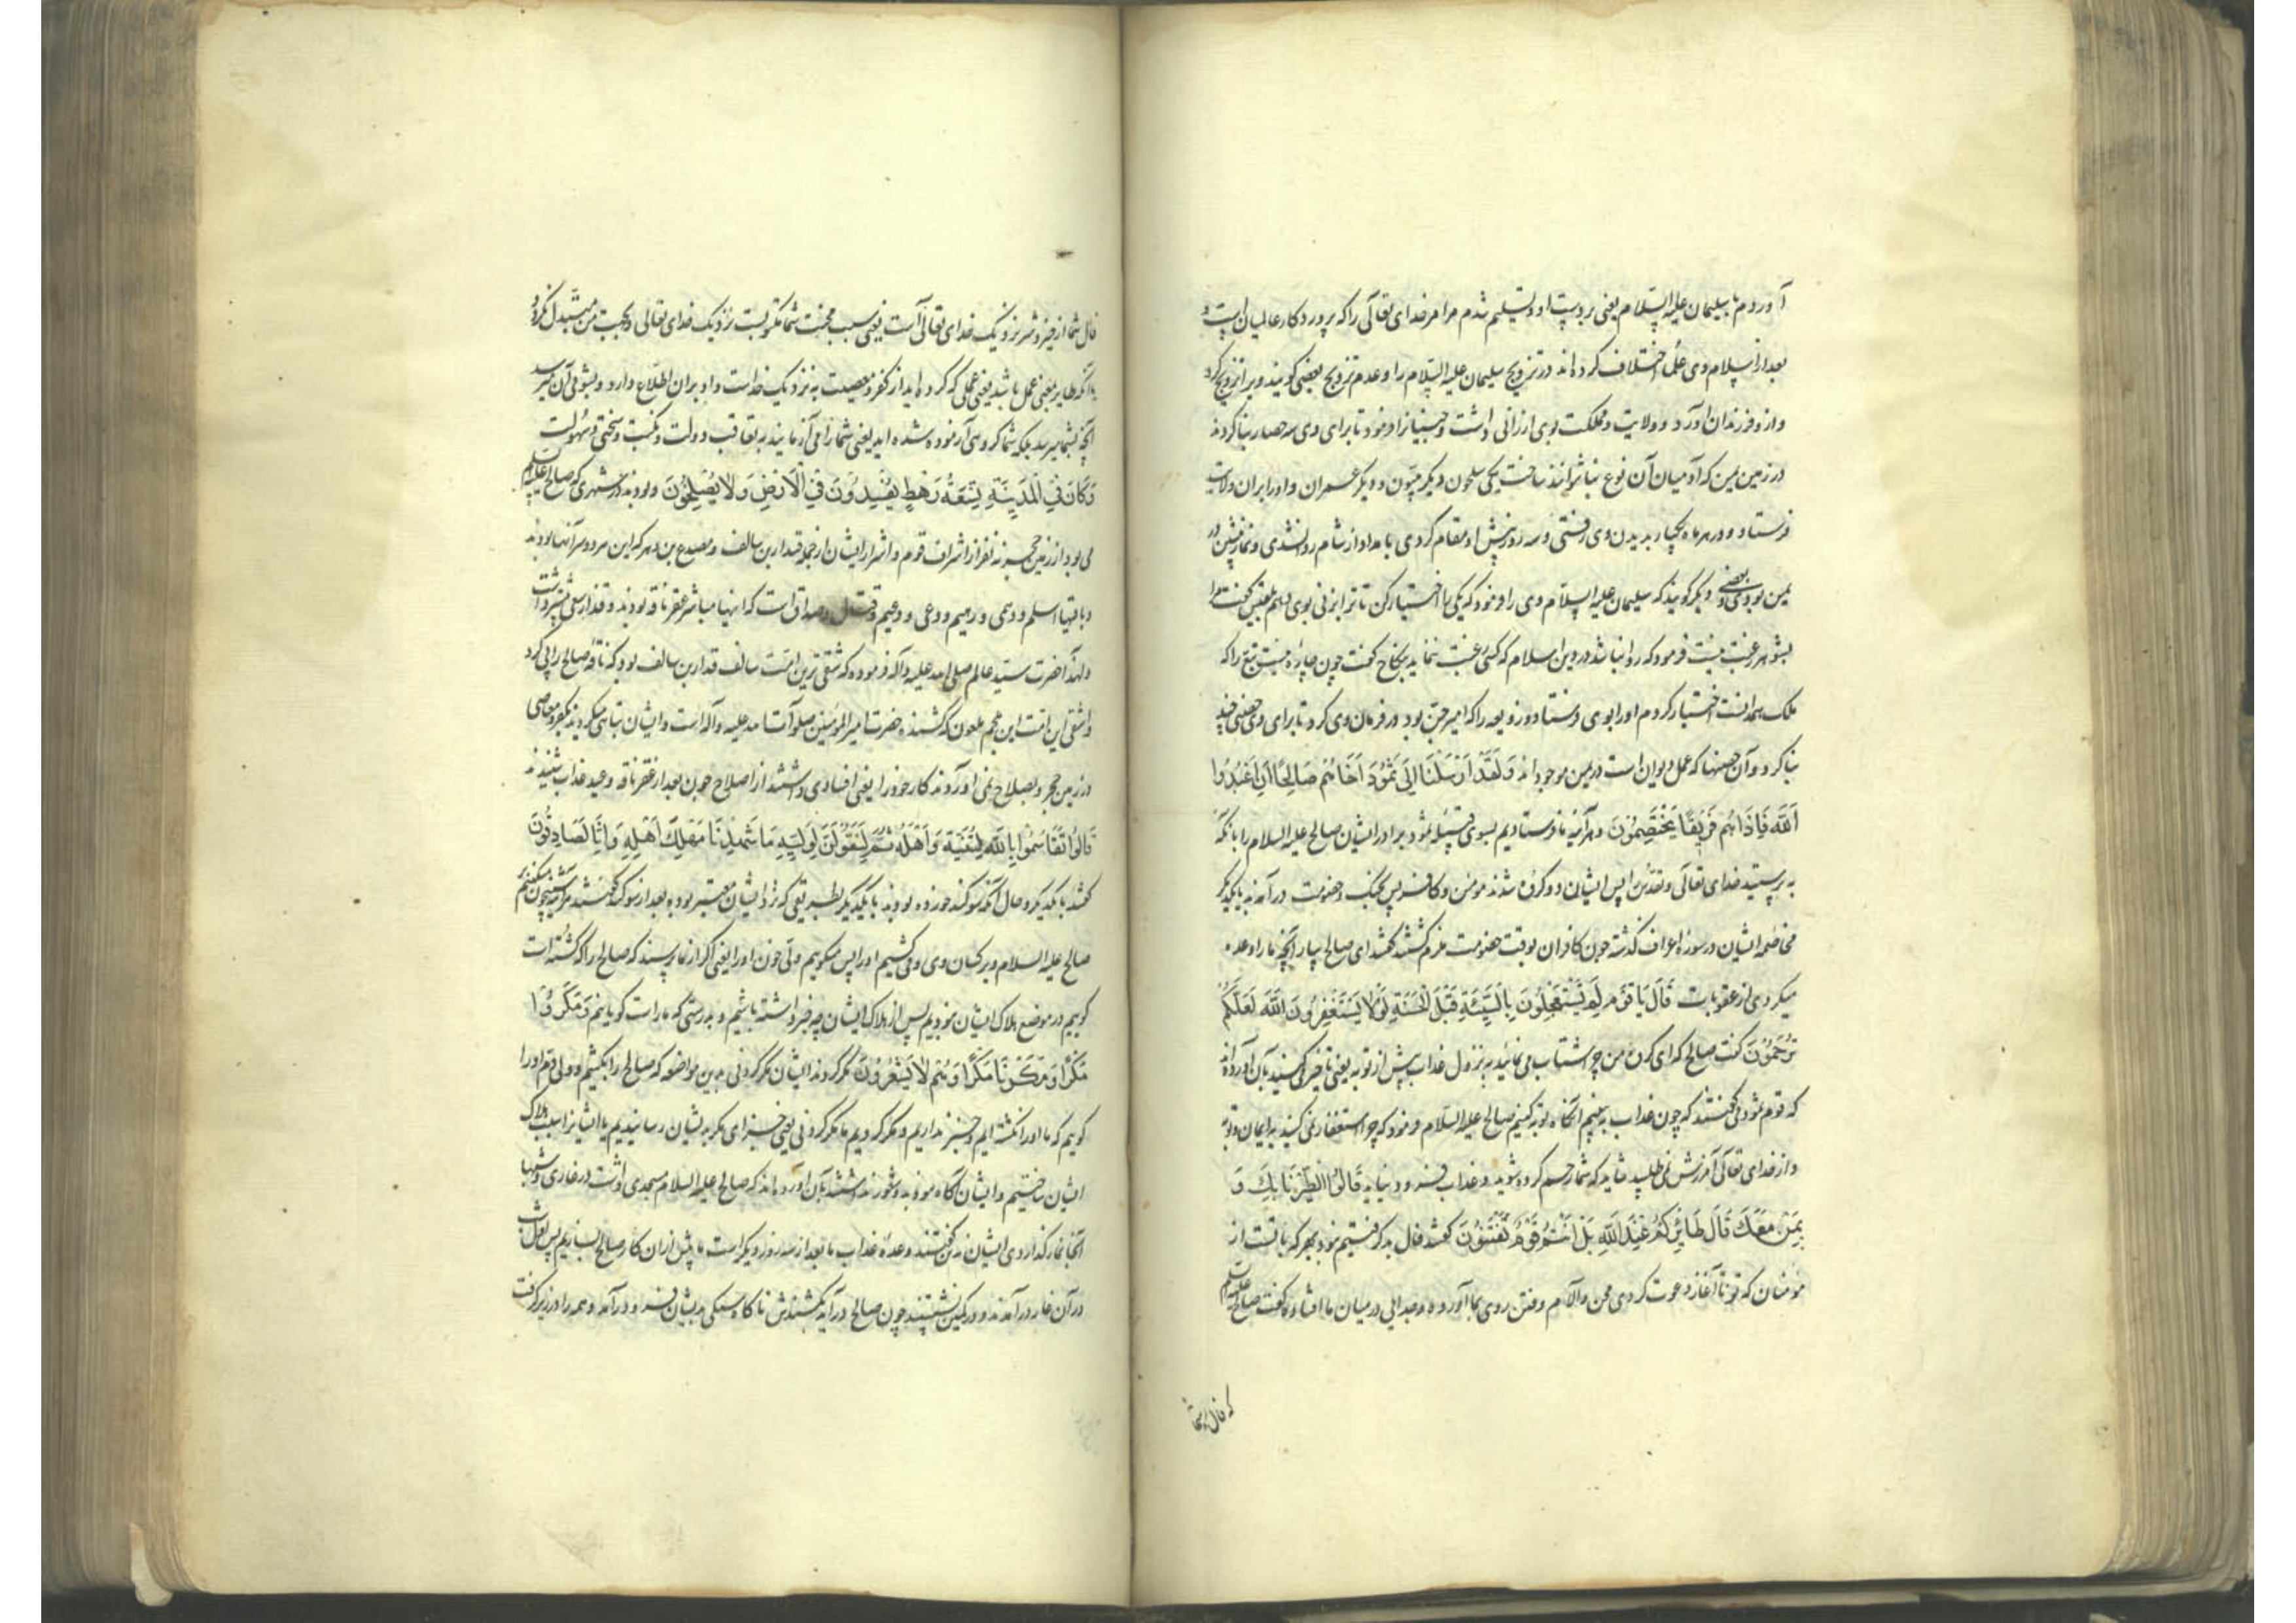 آوردم با سلیمان علیه السلام یعنی بر دست او و تسلیم شدم مر امر خدای تعالی را که پروردکار عالمیان است و
بعد از اسلام وی علما اختلاف کرده اند در تزویج سلیمان علیه السلام را و عدم تزویج بعضی کویند ویرا تزویج کرد
و از و فرزندان اورد و ولایت و مملکت بوی ارزانی داشت و جنیانرا فرمود تا برای وی سه حصار بنا کردند
در زمین یمن که آدمیان آن نوع بنا نتوانند ساخت یکی سلحون دیگر و دیگر عمران و او را بران ولایت
فرستاد و در هر ماه یکبار بدیدن وی رفتی و سه روز پیش او مقام کردی بامداد از شام روانه شدی و نماز پیشین در
یمن بودی و بعضی دیگر کویند که سلیمان علیه السلام وی را فرمود که یکی را اختیار کن تا ترا بزنی بوی دهم بلقیس کفت مرا
بشوهر رغبت نیست فرمود که روا نباشد در دین اسلام که کسی رغبت ننماید بنکاح کفت چون چاره نیست تبع را که
ملک همدانست اختیار کردم او را بوی فرستاد و زوبعه را که امیر جن بود در فرمان وی کرد تا برای وی حصنی چند
بنا کرد و آن حصنها که عمل دیوان است در یمن موجود اند وَلَقَدْ اَرْسَلْنَا اِلَى ثَمُودَ اَخَاهُمْ صَالِحًا اَنِ اعْبُدُوا
اللَّهَ فَاِذَا هُمْ فَرِيقَانِ يَخْتَصِمُونَ و هر آینه ما فرستادیم بسوی قبیله ثمود برادر ایشان صالح علیه السلام را بانکه
بپرستید خدای تعالی و تقدس پس ایشان دو کروه شدند مومن و کافر پس بجنک و خصومت درآمدند با یکدیکر
مخاصمه ایشان در سوره اعراف کذشته چون کافران بوقت خصومت ملزم کشتند کفتند ای صالح بیار آنچه ما را وعده
میکردی از عقوبات قَالَ يَا قَوْمِ لِمَ تَسْتَعْجِلُونَ بِالسَّيِّئَةِ قَبْلَ الْحَسَنَةِ لَوْلَا تَسْتَغْفِرُونَ اللَّهَ لَعَلَّكُمْ
تُرْحَمُونَ کفت صالح که ای کروه من چرا شتاب می نمائید به نزول عذاب پیش از توبه یعنی تاخیر میکنید بآن آورده اند
که قوم ثمود می کفتند که چون عذاب به بینیم آنکاه توبه کنیم صالح علیه السلام فرمود که چرا استغفار نمی کنید به ایمان و توبه
و از خدای تعالی آمرزش نمی طلبید شاید که شما رحم کرده شوید و عذاب فرود نیاید قَالُوا اطَّيَّرْنَا بِكَ وَ
بِمَنْ مَعَكَ قَالَ طَائِرُكُمْ عِنْدَ اللَّهِ بَلْ اَنْتُمْ قَوْمٌ تُفْتَنُونَ کفتند فال بد کرفتیم بتو و بهر که با تست از
مؤمنان که تو تا آغاز دعوت کردی محن و آلام و فتن روی بما آورده و جدایی در میان ما افتاد کفت صالح علیه السلم
که فال شما
فال شما از خیر و شر نزدیک خدای تعالی است یعنی سبب محنت شما مکتوبست نزدیک خدای تعالی و بجهت من متبدل نکردد
یا آنکه طایر بمعنی عمل باشد یعنی عملی که کرده اید از کفر و معصیت به نزدیک خداست و او بران اطلاع دارد و بشومی آن میرسد
آنچه بشما میرسد بلکه شما کروهی آزموده شده اید یعنی شما را می آزمایند به تعاقب دولت و نکبت و سختی و سهولت
وَكَانَ فِي الْمَدِينَةِ تِسْعَةُ رَهْطٍ يُفْسِدُونَ فِي الْاَرْضِ وَلَا يُصْلِحُونَ و بودند در شهری که صالح علیه السلم
می بود از زمین حجر نه نفر از اشراف قوم و اشرار ایشان از جمله قدار بن سالف و مصدع بن دهر که این مردو سر آنها بودند
و باقیها اسلم و دهمی و رهیم و دعمی و دعیم و قتال و صداق است که اینها مباشر عقر ناقه بودند و قدار
و لهذا حضرت سید عالم صلی الله علیه وآله فرموده که شقی ترین امت سالف قدار بن سالف بود که ناقه صالح را پی کرد
و اشقی این امت ابن ملجم ملعون که کشنده حضرت امیر المؤمنین صلوات الله علیه و آله است و ایشان تباهی میکردند بکفر و معاصی
در زمین حجر و بصلاح نمی آوردند کار خود را یعنی افساد می داشتند از اصلاح چون بعد از عقر ناقه وعید عذاب شنیدند
قَالُوا تَقَاسَمُوا بِاللَّهِ لَنُبَيِّتَنَّهُ وَاَهْلَهُ ثُمَّ لَنَقُولَنَّ لِوَلِيِّهِ مَا شَهِدْنَا مَهْلِكَ اَهْلِهِ وَاِنَّا لَصَادِقُونَ
کفتند با یکدیکر و حال آنکه سوکند خورده بودند با یکدیکر بطریقی که نزد ایشان معتبر بوده بعد از سوکند کفتند هر آینه شبیخون میکنیم
صالح علیه السلام و بر کسان وی و می کشیم او را پس میکوییم ولی خون او را یعنی اکر از ما پرسند که صالح را که کشته است
کوییم در موضع هلاک ایشان نبودیم پس از هلاک ایشان چه خبر داشته باشیم و بدرستی که ما راست کویانیم وَمَكَرُوا
مَكْرًا وَمَكَرْنَا مَكْرًا وَهُمْ لَا يَشْعُرُونَ مکر کردند ایشان مکر کردنی بدین مواضعه که صالح را بکشیم و ولی دم او را
کوییم که ما او را نکشته ایم و خبر نداریم و مکر کردیم ما مکر کردنی یعنی جزای مکر به ایشان رسانیدیم یا ایشانرا سبب هلاک
ایشان ساختیم و ایشان آکاه نبودند و شعور نداشتند بآن آورده اند که صالح علیه السلام مسجدی داشت در غاری و شبها
آنجا نماز کذاردی ایشان کفتند وعده عذاب ما بعد از سه روز دیکر است ما پیش ازان کار صالح بسازیم پس
در آن غار در آمدند و در کمین نشستند چون صالح درآید بکشندش ناکاه سنکی بدیشان فرود درآمد و همه را در زیر کرفت